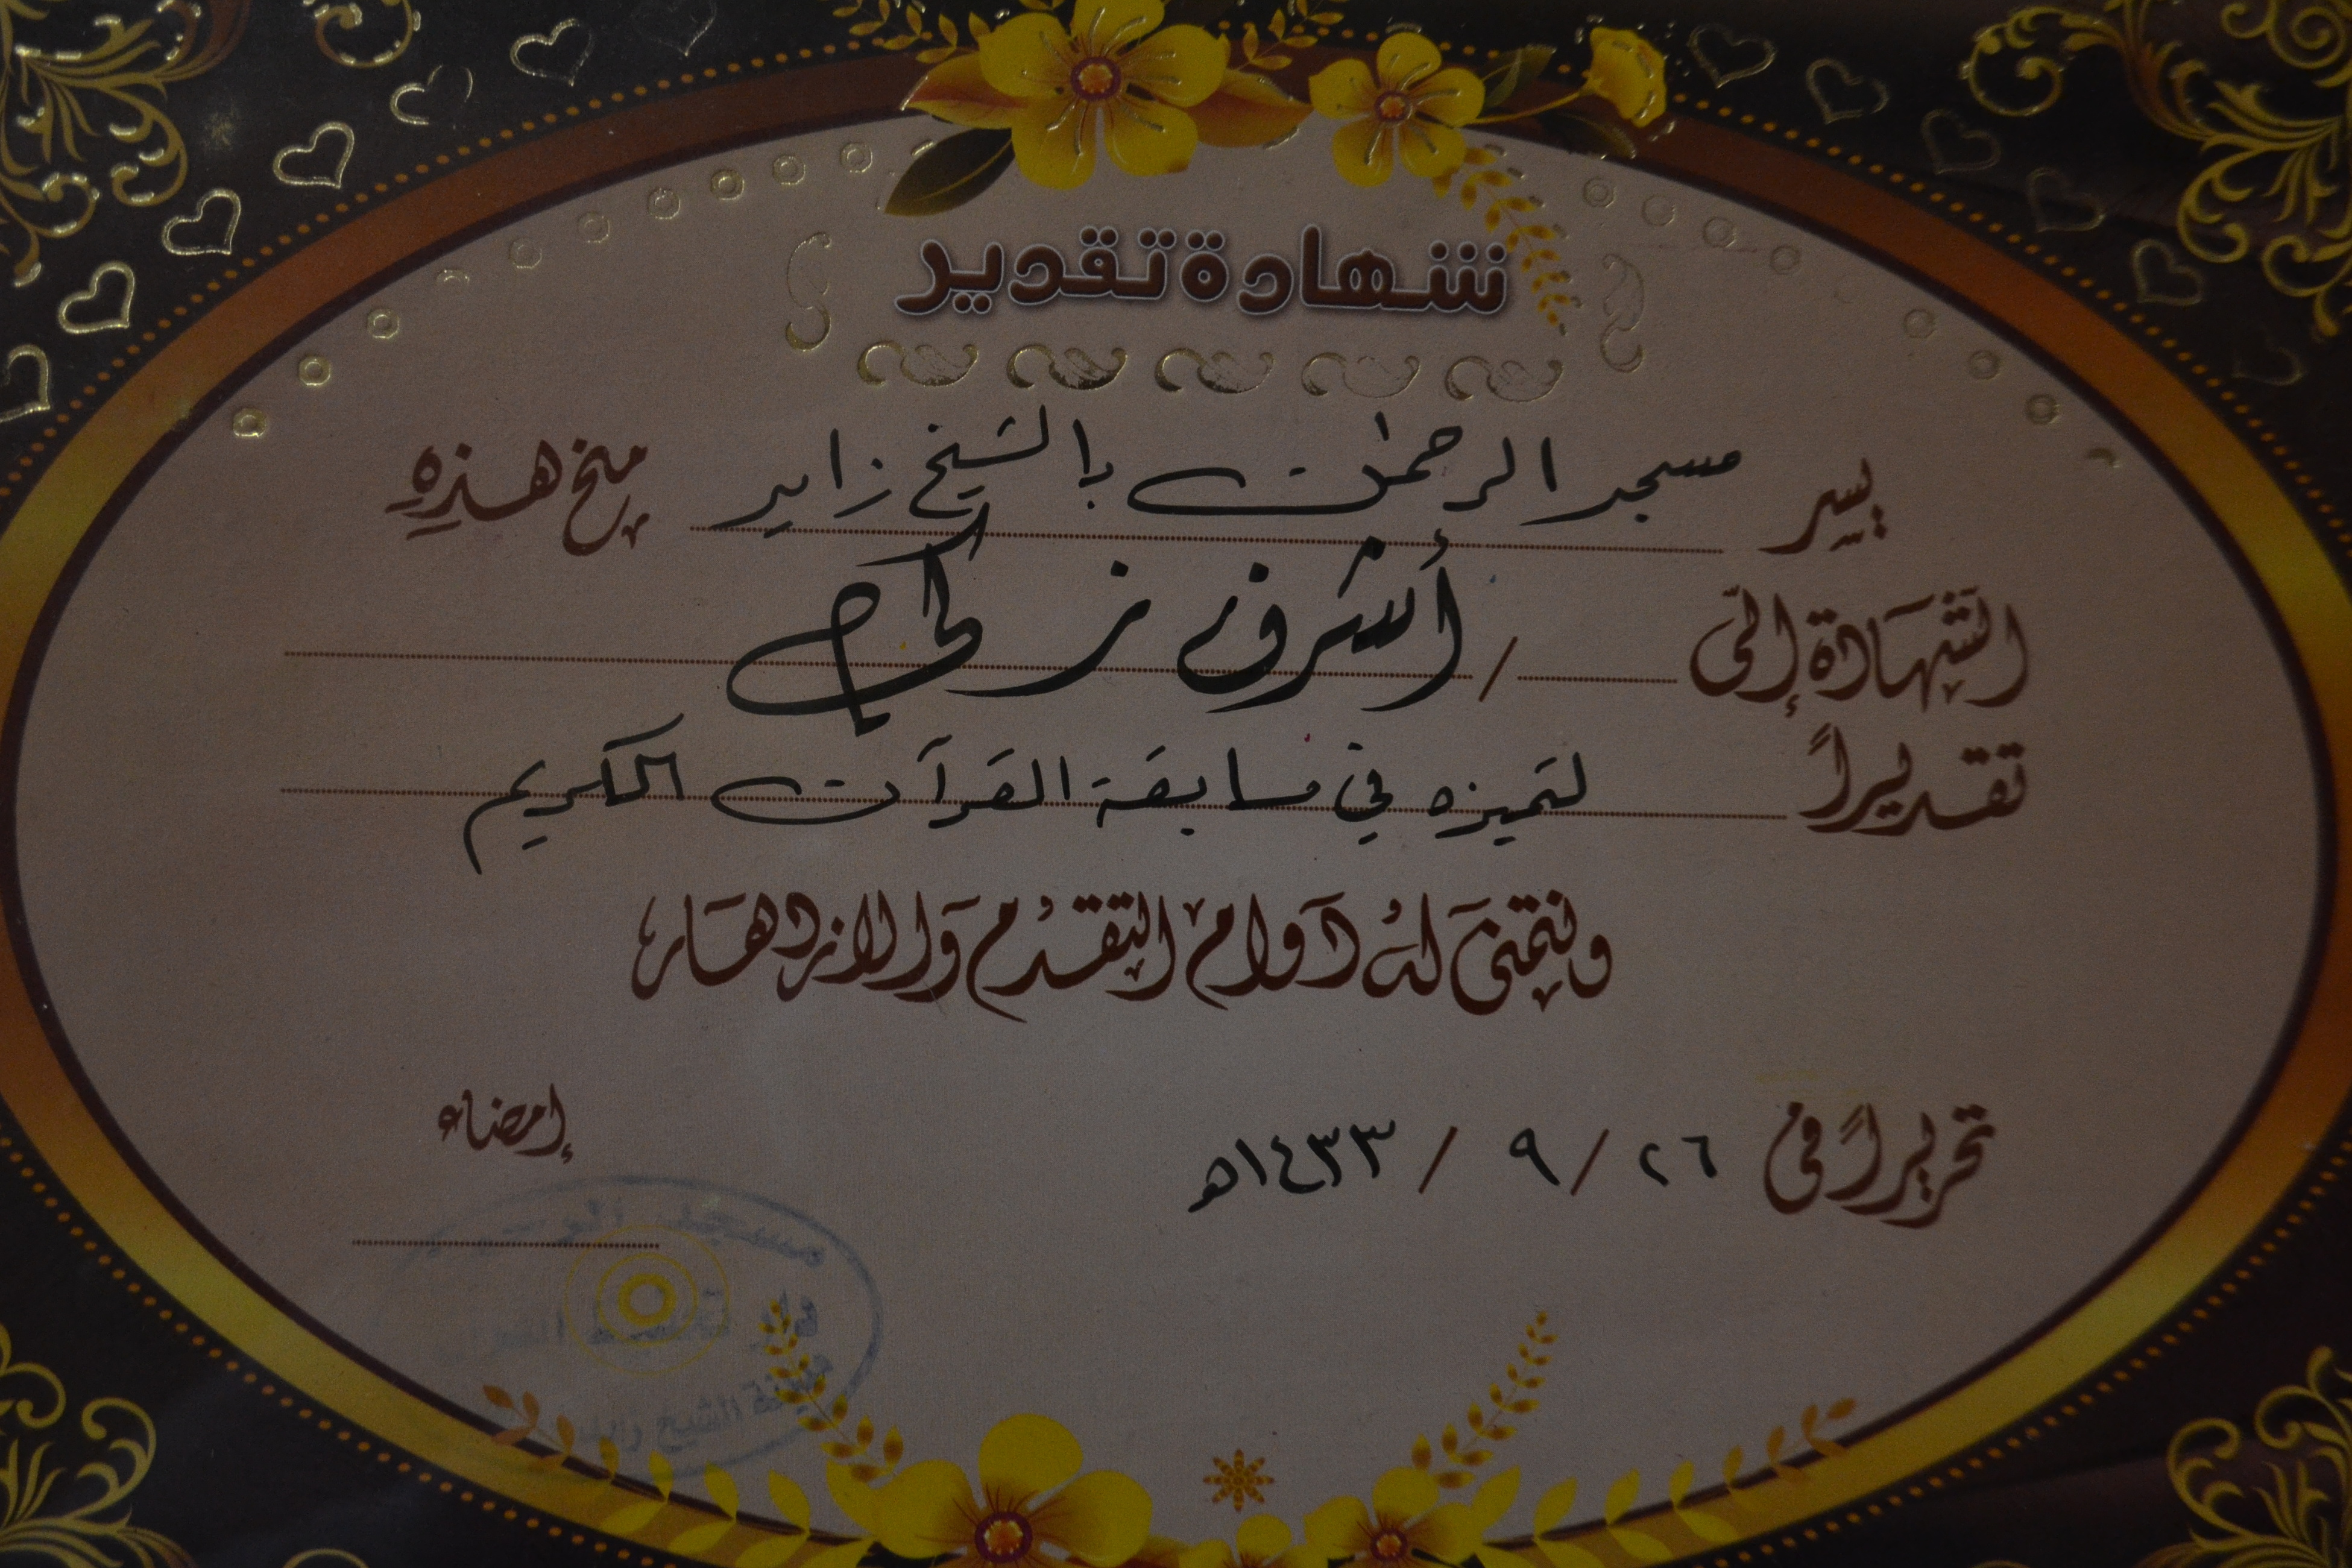 شهادة تقدير
يسر مسجد الرحمن بالشيخ زايد منح هذه
الشهادة إلى / أشرف زكى
تقديراً لتميزه في مسابقة القرآن الكريم
ونتمنى له دوام التقدم والازدهار
تحريراً فى ٢٦ / ٩ / ١٤٣٣هـ
إمضاء
مسجد
الشيخ زايد